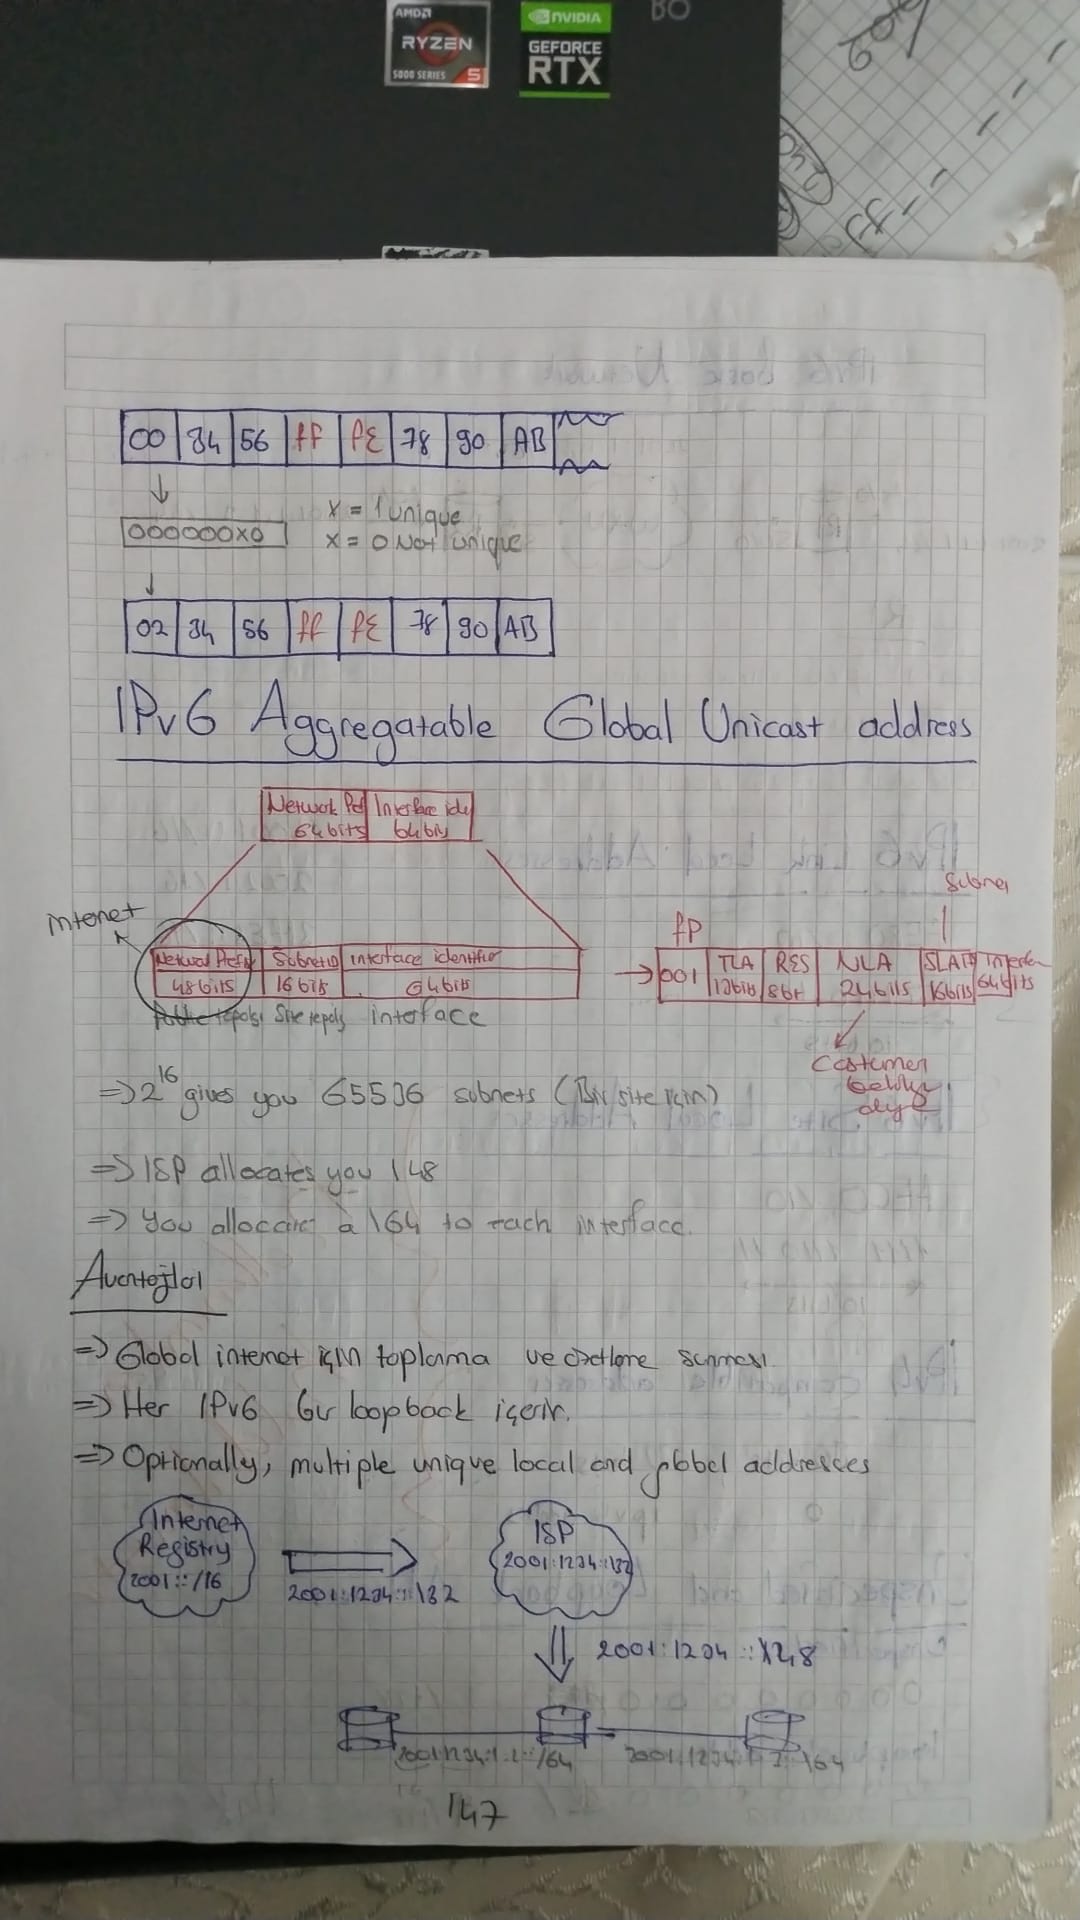 AMDA
RYZEN
5000 SERIES 5
NVIDIA
GEFORCE
RTX
BO
00 34 56 ff fE 78 90 AB
000000X0
X = 1 unique
X = 0 Not unique
02 34 56 ff fE 78 90 AB
IPv6 Aggregatable Global Unicast address
Network Pref Interface ide
64bits 64bits
Internet
Network Prefix Subnet ID interface identifier
48bits 16 bits 64bits
interface
Subnet
fP
001 TLA RES NLA SLA
13bits 8bit 24bits 16bits 64bits
Costumer
=> 2^16 gives you 65536 subnets (Bir site için)
=> ISP allocates you /48
=> You allocate a \64 to each interface.
Avantajları
=> Global internet için toplama ve özetleme sunması
=> Her IPv6 bir loopback içerir.
=> Optionally, multiple unique local and global addresses
Internet
Registry
2001::/16
2001:1234::\32
ISP
2001:1234::\32
2001:1234::\48
2001:1234:1:1::/64
2001:1234:1:2::\64
147